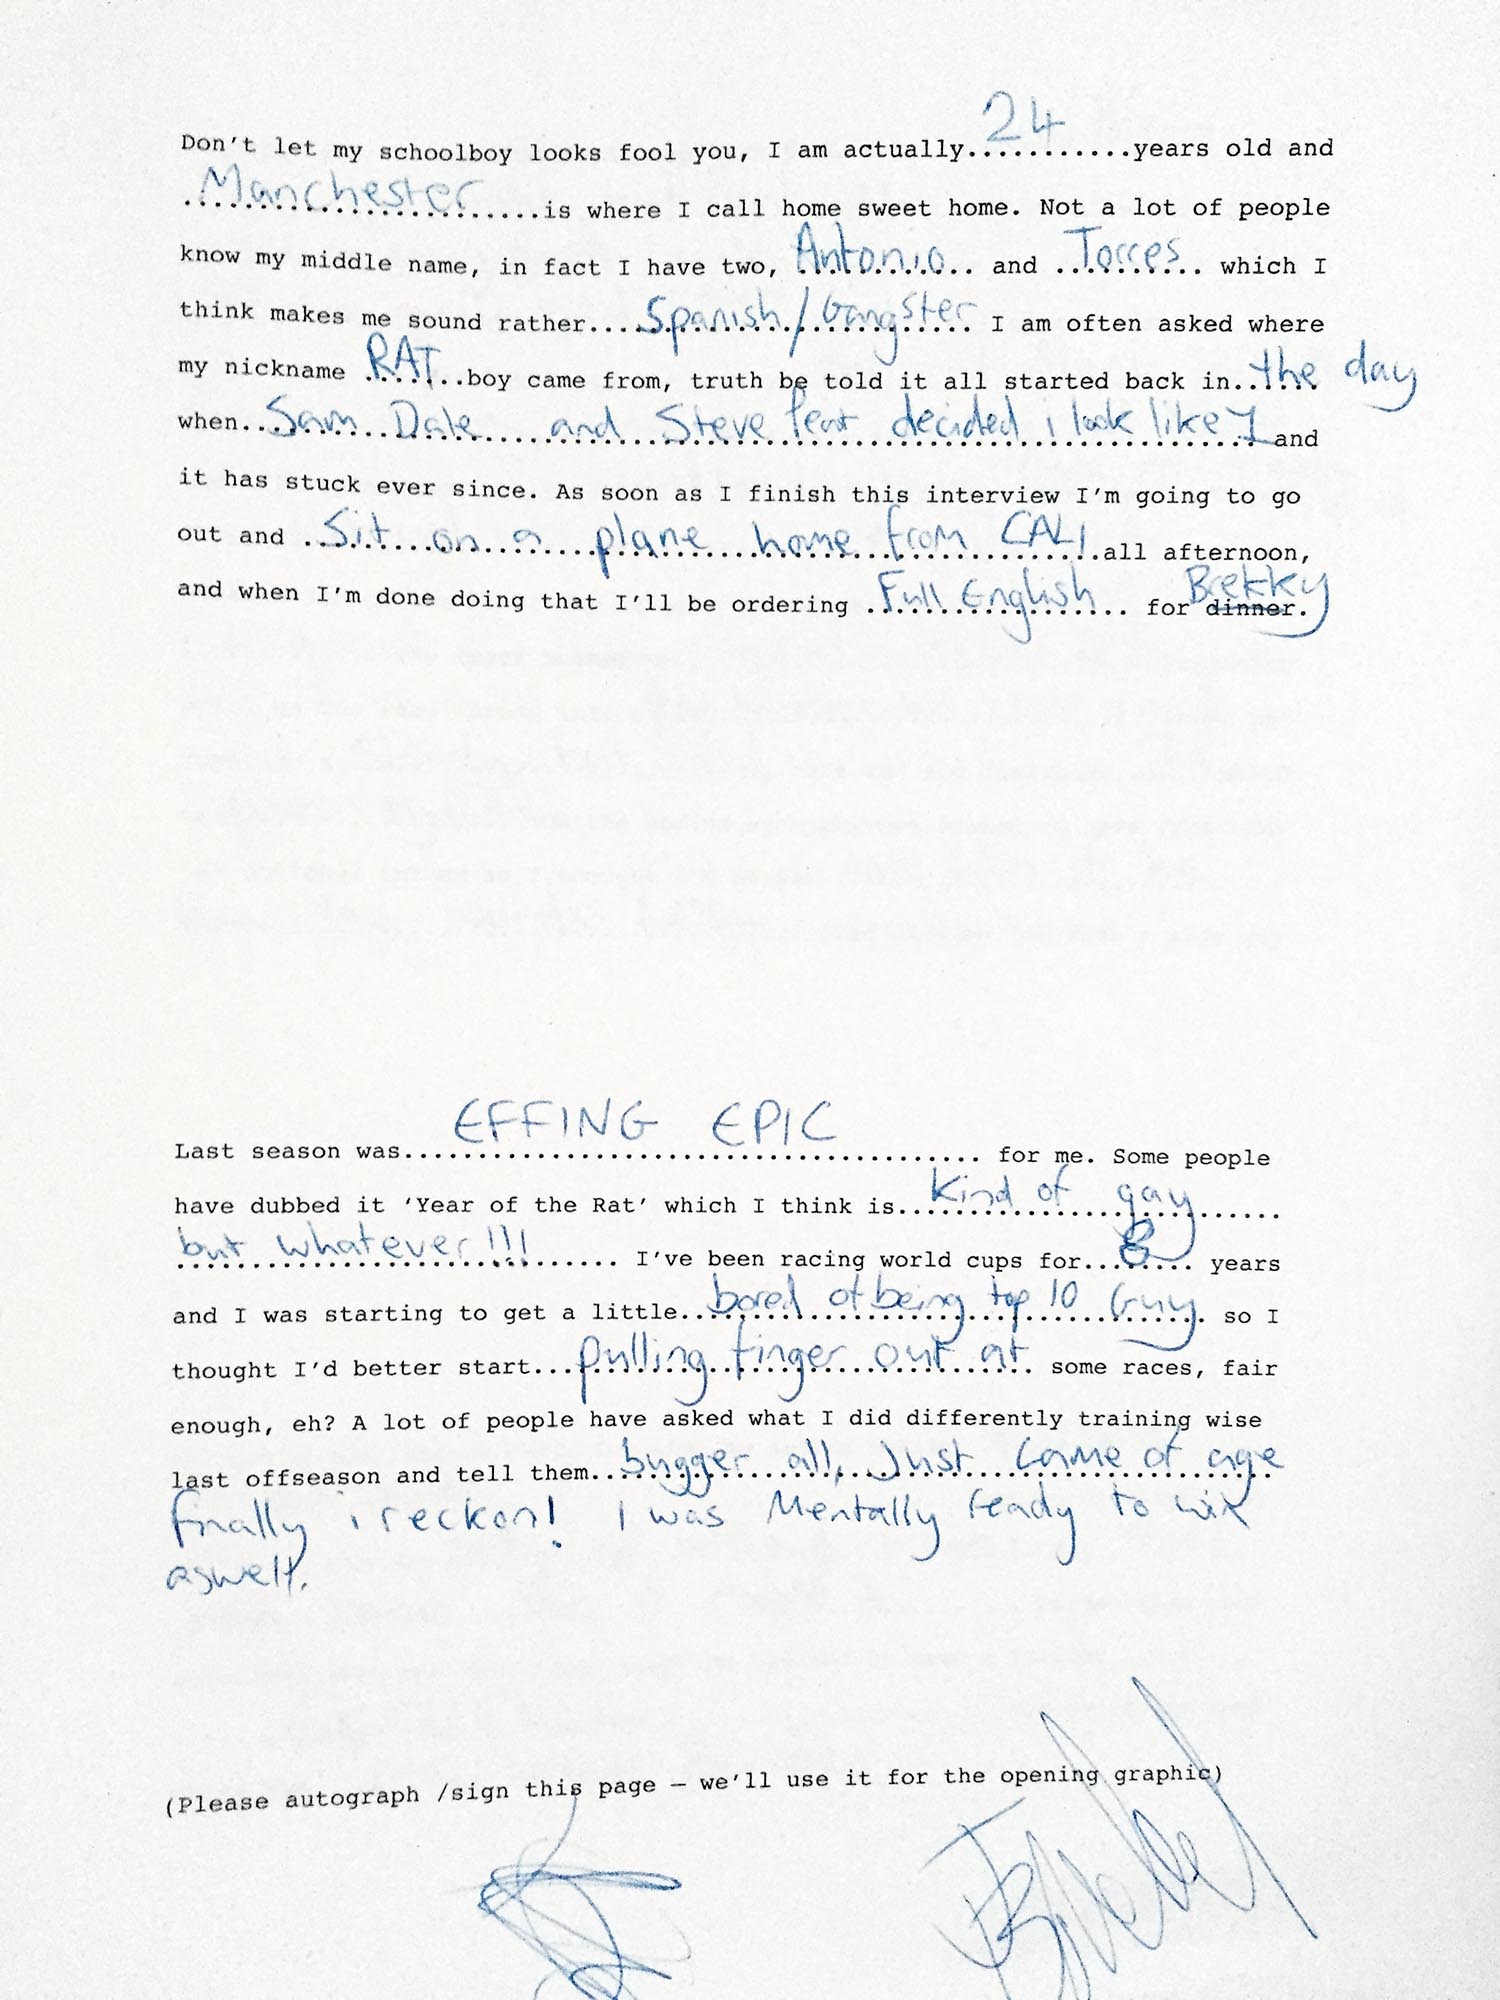 Don't let my schoolboy looks fool you, I am actually...24...years old and
Manchester is where I call home sweet home. Not a lot of people
know my middle name, in fact I have two, Antonio and Torres which I
think makes me sound rather....Spanish/Gangster I am often asked where
my nickname RAT boy came from, truth be told it all started back in..the day
when..Sam Dale and Steve Peat decided i look like 1 and
it has stuck ever since. As soon as I finish this interview I'm going to go
out and Sit on a plane home from CALI all afternoon,
and when I'm done doing that I'll be ordering Full English for dinner. Brekky
Last season was...EFFING EPIC... for me. Some people
have dubbed it 'Year of the Rat' which I think is...Kind of gay
but whatever!!! I've been racing world cups for...8... years
and I was starting to get a little..bored of being top 10 Guy so I
thought I'd better start...pulling finger out at some races, fair
enough, eh? A lot of people have asked what I did differently training wise
last offseason and tell them..bugger all, Just came of age
finally i reckon! I was Mentally ready to win
aswell.
(Please autograph /sign this page – we'll use it for the opening graphic)